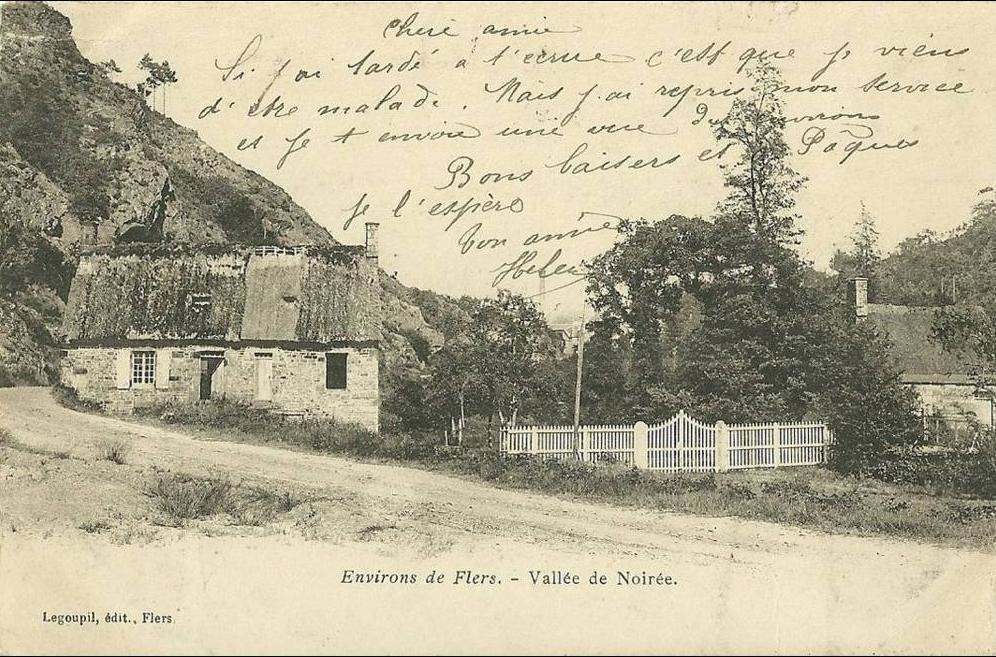 Cheré amie
Si j'ai tardé a t'ecrire c'est que je viens
d'être malade. Mais j'ai repris mon service
et je t envoie une vue des environs
Bons baisers et Pâques
je l'espère
ton amie
Helene
Environs de Flers. - Vallée de Noirée.
Legoupil, édit., Flers